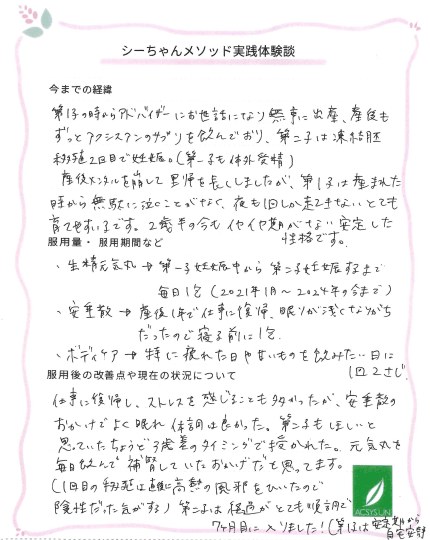 シーちゃんメソッド実践体験談
今までの経緯
第1子の時からアドバイザーにお世話になり無事に出産、産後も
ずっとアクシスアンのサプリを飲んでおり、第二子は凍結胚
移植2回目で妊娠。(第一子も体外受精)
産後メンタルを崩して里帰を長くしましたが、第1子は産まれた
時から無駄に泣くことがなく、夜も1回しか起きないとても
育てやすい子です。2歳半の今もイヤイヤ期がない安定した
性格です。
服用量・服用期間など
・生精元気丸→第一子妊娠中から第二子妊娠するまで
毎日1包(2021年1月〜2024年の今まで)
・安亜散→産後1年で仕事に復帰、眠りが浅くなりがち
だったので寝る前に1包.
・ボディケア→特に疲れた日や甘いものを飲みたい日に
1回2さじ.
服用後の改善点や現在の状況について
仕事に復帰し、ストレスを感じることも多かったが、安亜散の
おかげでよく眠れ体調は良かった。第二子もほしいと
思っていたちょうど3歳差のタイミングで授かれた。元気丸を
毎日飲んで補腎していたおかげだと思ってます。
(1回目の移植は直後に高熱の風邪をひいたので
陰性だった気がする)第二子は経過がとても順調で
7ヶ月目に入りました!(第1子は安定期から
自宅安静
ACSYSUN